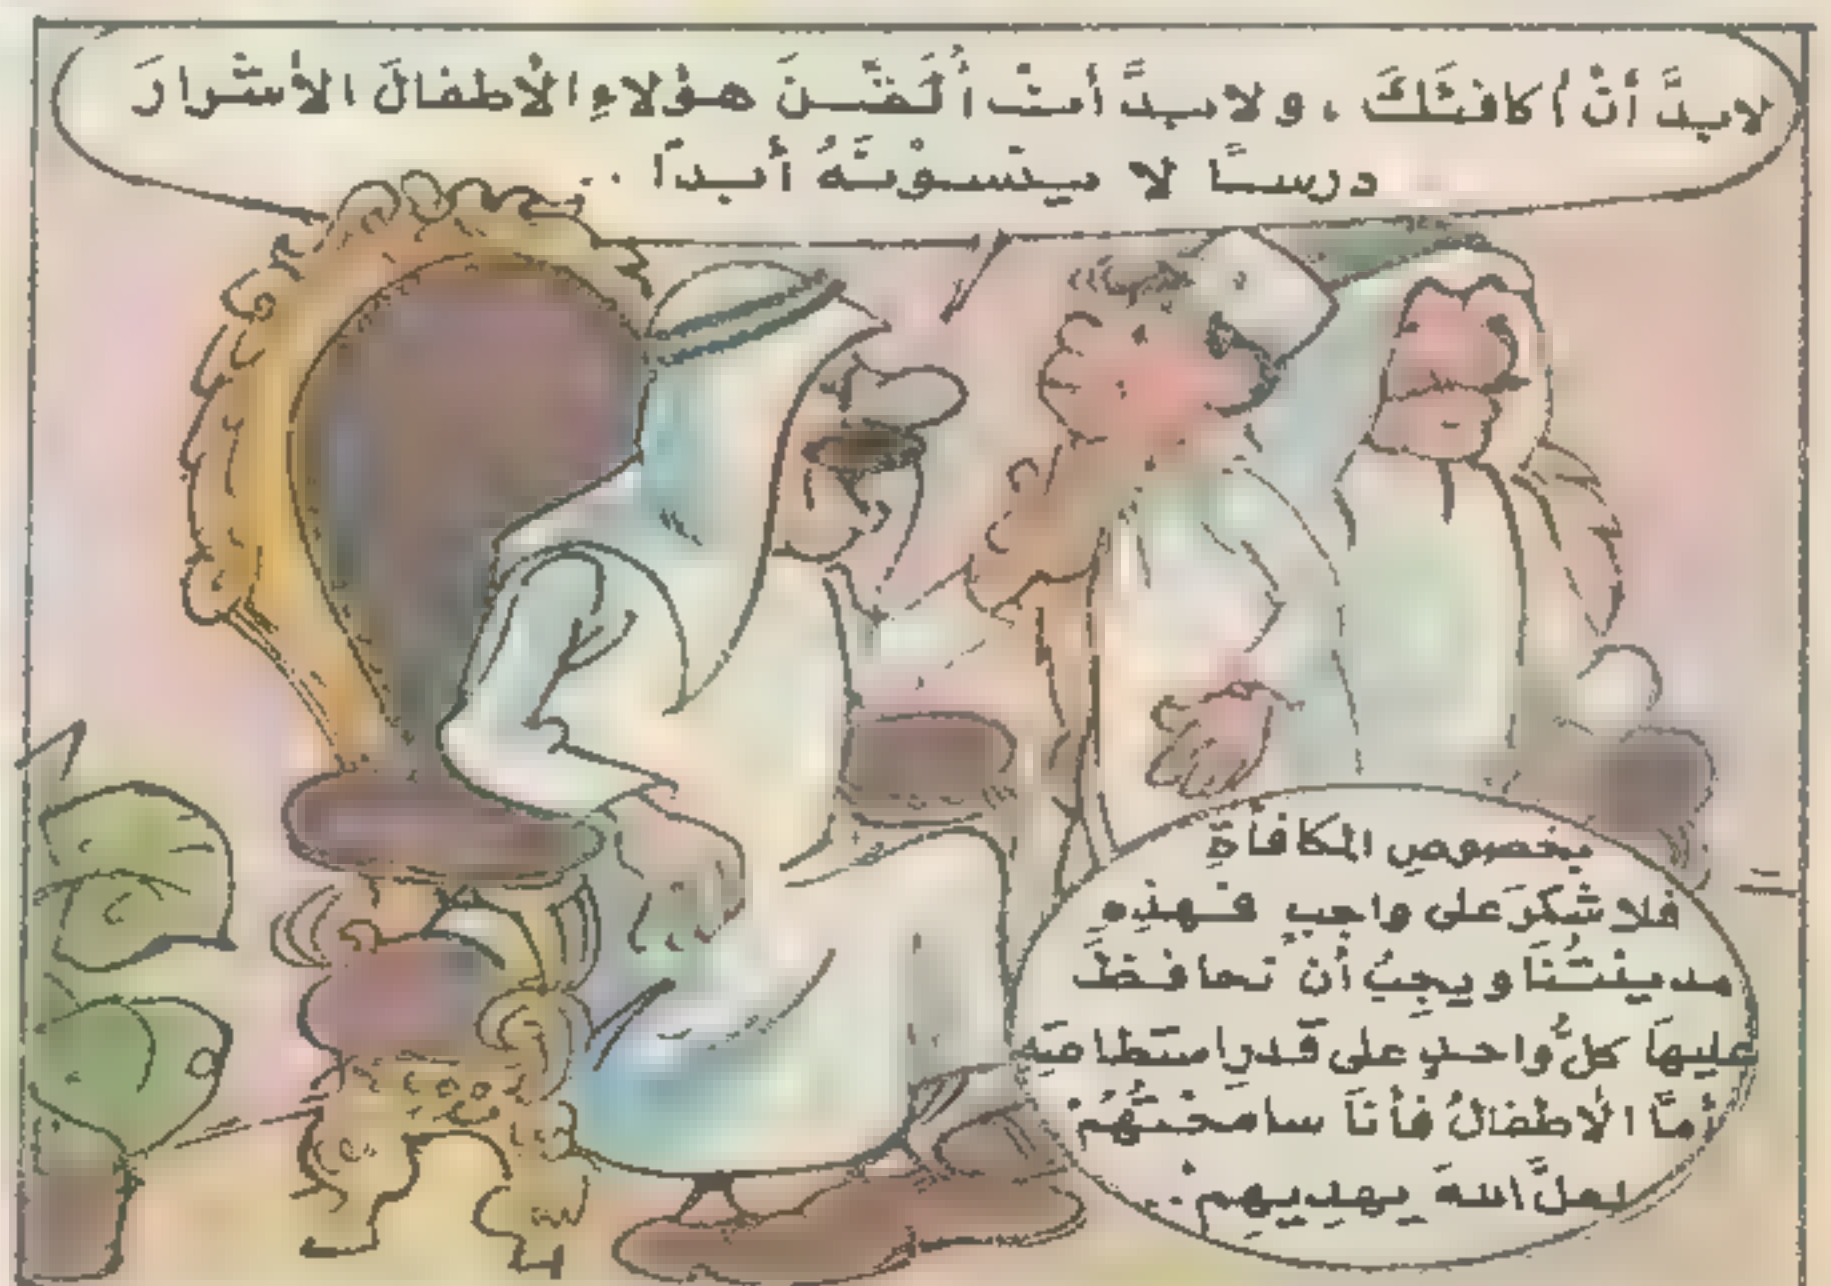 لابدَّ أنْ أُكافئَكَ ، ولابدَّ أنْ أُلَقِّنَ هؤلاءِ الأطفالَ الأشرارَ
درسًا لا ينسوْنَهُ أبدًا ..
بخصوصِ المكافأةِ
فلا شكرَ على واجبٍ فهذهِ
مدينتُنَا ويجبُ أن نحافظَ
عليهَا كلُّ واحدٍ على قدرِ استطاعتِهِ
أمَّا الأطفالُ فأنَا سامحْتُهُمْ
لعلَّ اللهَ يهديهِمْ ..